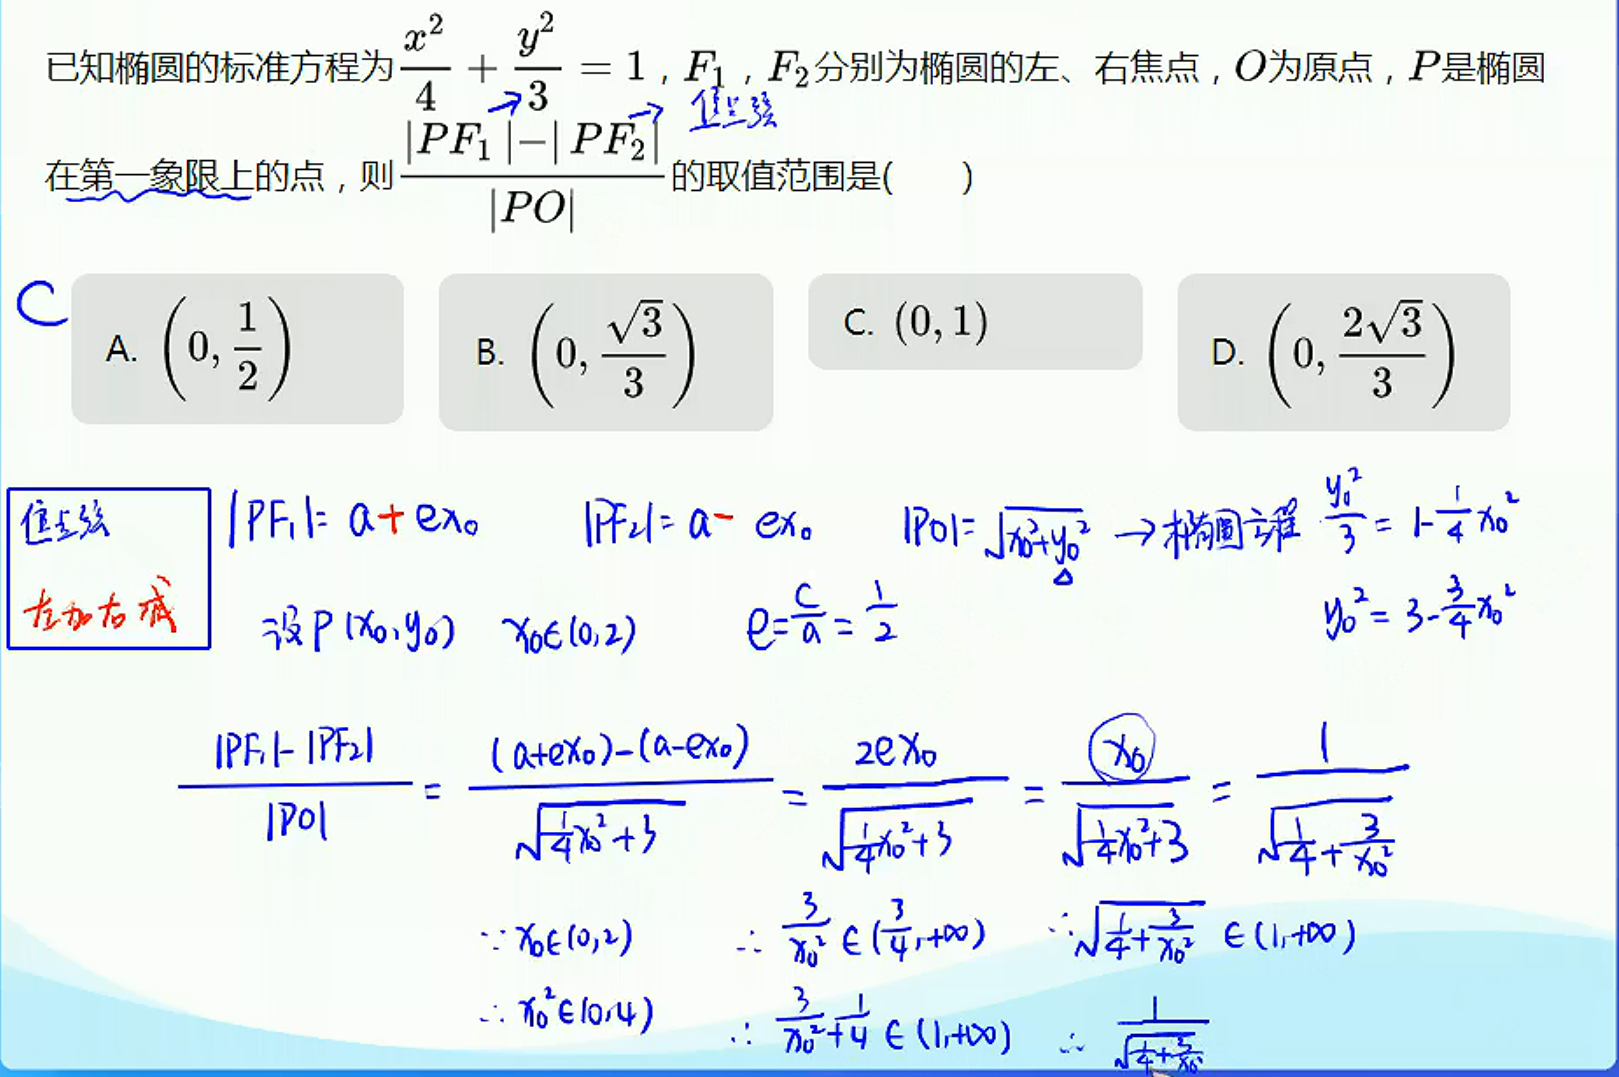 已知椭圆的标准方程为 x²/4 + y²/3 = 1，F₁，F₂分别为椭圆的左、右焦点，O为原点，P是椭圆
在第一象限上的点，则 (|PF₁|−|PF₂|)/|PO| 的取值范围是( )
C
A. (0, 1/2)
B. (0, √3/3)
C. (0, 1)
D. (0, 2√3/3)
|PF₁| = a + ex₀ |PF₂| = a − ex₀ |PO| = √(x₀²+y₀²) → 椭圆方程 y₀²/3 = 1 − 1/4 x₀²
左加右减
设P(x₀,y₀) x₀∈(0,2) e = c/a = 1/2 y₀² = 3 − 3/4 x₀²
(|PF₁|−|PF₂|)/|PO| = ((a+ex₀)−(a−ex₀))/√(1/4 x₀²+3) = 2ex₀/√(1/4 x₀²+3) = x₀/√(1/4 x₀²+3) = 1/√(1/4+3/x₀²)
∵ x₀∈(0,2) ∴ 3/x₀² ∈(3/4,+∞) ∴ √(1/4+3/x₀²) ∈(1,+∞)
∴ x₀²∈(0,4) ∴ 3/x₀²+1/4 ∈(1,+∞) ∴ 1/√(1/4+3/x₀²)